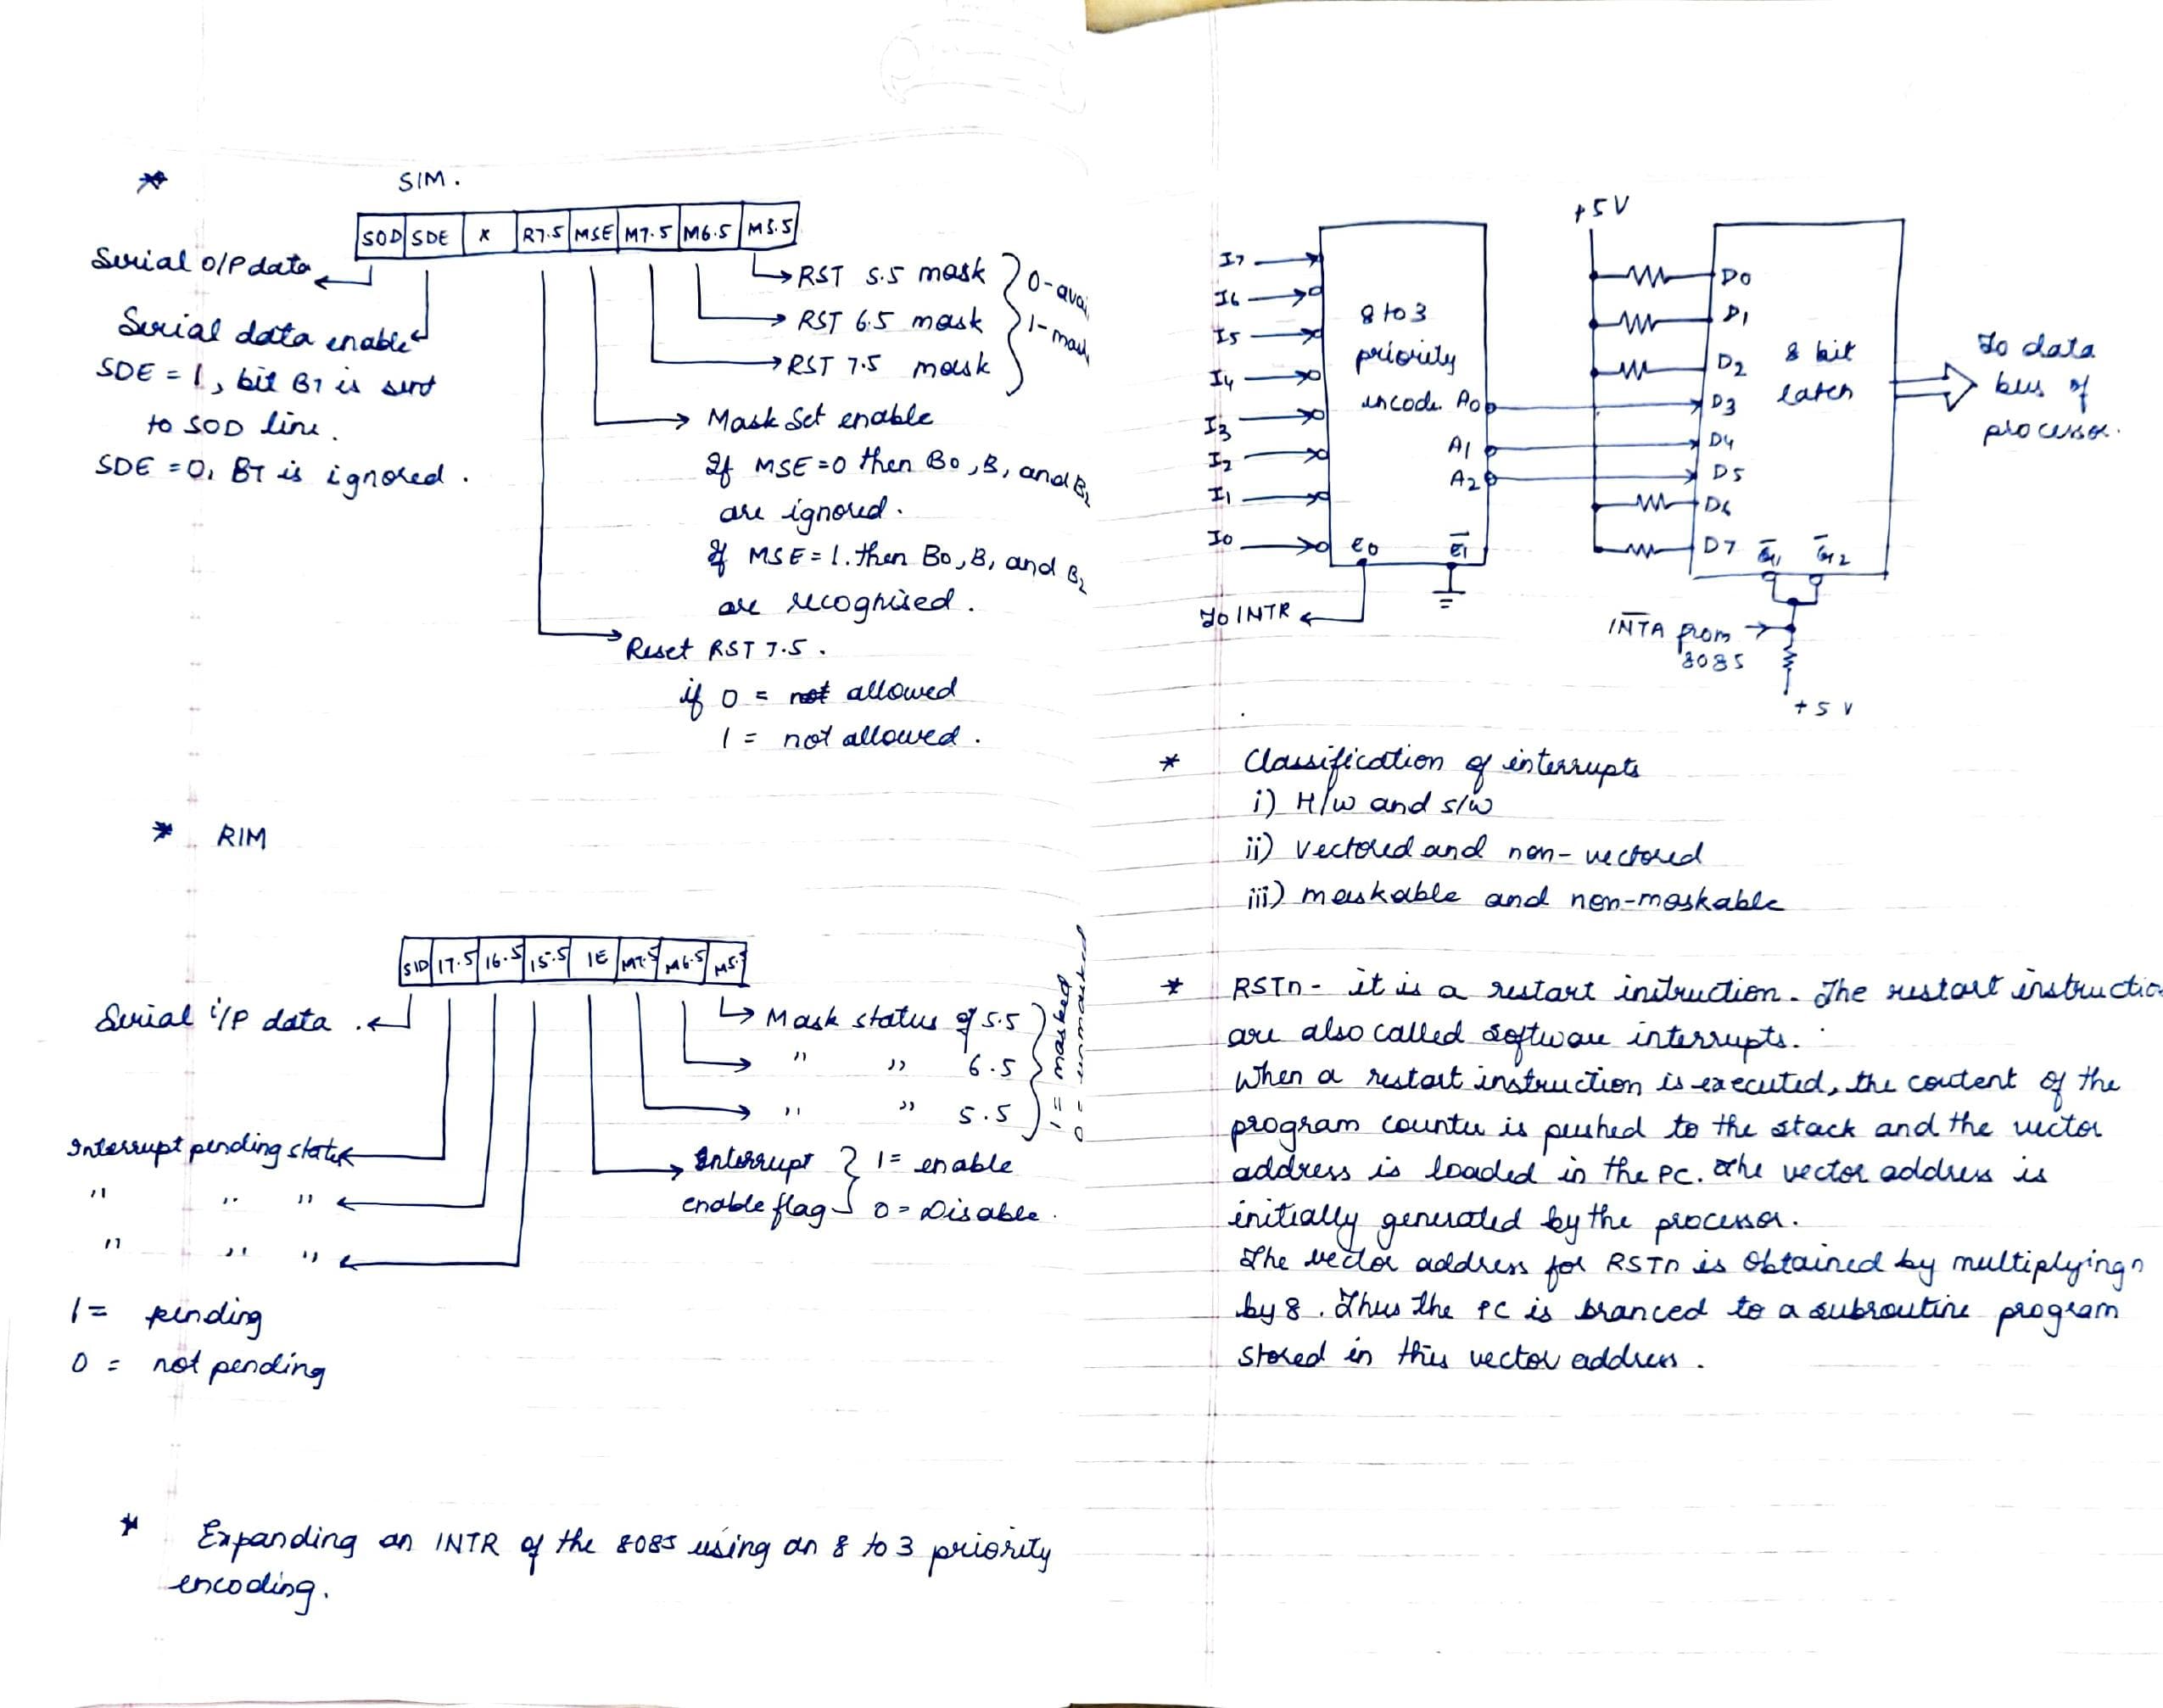 SIM.
SOD SDE X R7.5 MSE M7.5 M6.5 M5.5
Serial O/P data
Serial data enable
SDE = 1, bit B7 is sent
to SOD line.
SDE = 0, B7 is ignored.
RST 5.5 mask
RST 6.5 mask
RST 7.5 mask
0-
1-
Mask Set enable
If MSE=0 then B0, B1 and B2
are ignored.
If MSE=1. then B0, B1 and B2
are recognised.
Reset RST 7.5.
if 0 = allowed
1 = not allowed.
* RIM
SID I7.5 I6.5 I5.5 IE M7.5 M6.5 M5.5
Serial i/p data.
Mask status of 5.5
" " 6.5
" " 5.5
1 = masked
0 = unmasked
Interrupt pending status
" " "
" " "
1 = pending
0 = not pending
Interrupt enable flag
1 = enable
0 = Disable.
* Expanding an INTR of the 8085 using an 8 to 3 priority
encoding.
I7
I6
I5
I4
I3
I2
I1
I0
8 to 3
priority
encode.
A0
A1
A2
E0
E̅1
To INTR
+5V
D0
D1
D2
D3
D4
D5
D6
D7
8 bit
latch
G̅1 G̅2
To data
bus of
processor.
I̅N̅T̅A̅ from
8085
+5 V
* Classification of interrupts
i) H/w and s/w
ii) vectored and non-vectored
iii) maskable and non-maskable
* RSTn - it is a restart instruction. The restart instructio
are also called software interrupts.
When a restart instruction is executed, the content of the
program counter is pushed to the stack and the vector
address is loaded in the PC. The vector address is
initially generated by the processor.
The vector address for RSTn is obtained by multiplying n
by 8. Thus the PC is branced to a subroutine program
stored in this vector address.